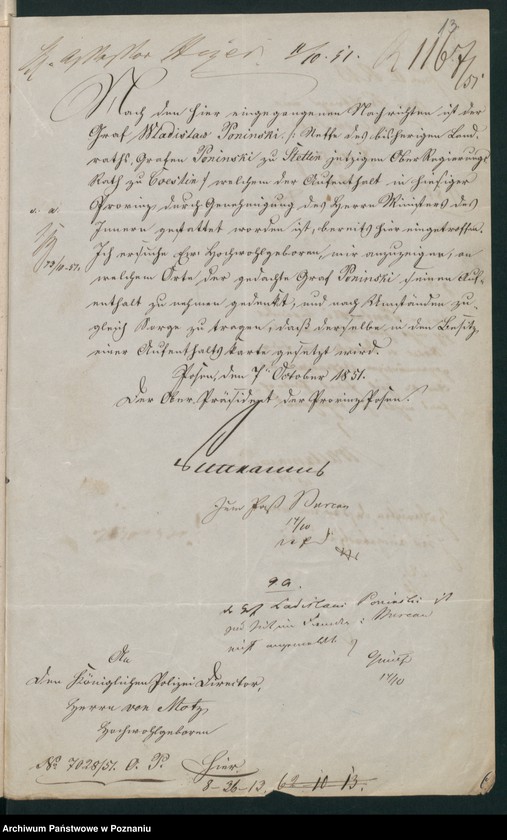 13
11/10. 51.
1167/51
Nach den hier eingegangenen Nachrichten ist der
Graf Wladislaw Poninski /: Neffe des bisherigen Land-
raths, Grafen Poninski zu Stettin jetzigen Ober Regierungs
Rath zu Coeslin :/ welchem der Aufenthalt in hiesiger
Provinz durch Genehmigung des Herrn Ministers des
Innern gestattet worden ist, bereits hier eingetroffen.
Ich ersuche Ew. Hochwohlgeboren, mir anzuzeigen, an
welchem Orte, der gedachte Graf Poninski seinen Auf-
enthalt zu nehmen gedenkt, und nach Umständen zu-
gleich Sorge zu tragen, daß derselbe in den Besitz
einer Aufenthaltskarte gesetzt wird.
Posen, den 7. October 1851.
Der Ober-Präsident der Provinz Posen.
Puttkammer
Zum Paß Bureau
g. a.
Ladislaus Poninski ist
Bureau
nicht angemeldet
17/10
An
den Königlichen Polizei Director,
Herrn von Motz
Hochwohlgeboren
No 7028/51. O. P. Hier.
8-26-13. 62 10 13.
Archiwum Państwowe w Poznaniu